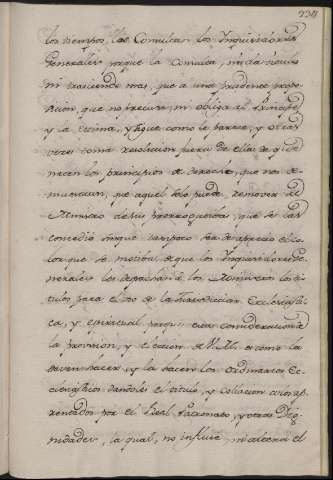 los tiempos, las Consultan los Inquisidores
Generales porque la Consulta, nada
ni trasciende mas, que a una prudente propo
sicion, que no precisa, ni obliga al Principe
y la estima, y sigue como le parece, y otras
veces toma resolucion fuera de ellas de q.e de
nacen los principios de derecho, que nos de
muestran, que aquel solo puede remover al
Ministro de sus prerrogativas, que se las
concedio sin que tampoco sea de aprecio el co
lor que se motiva de que los Inquisidores Ge
nerales les despachan a los Ministros los ti
tulos para el uso de la Jurisdiccion Eclesiasti
ca, y espiritual porque en consideracion a
la provision, y eleccion de V. M. es como la
deven hacer, y la hacen los ordinarios Ec
clesiasticos dandoles el titulo, y collacion a los ap
resentados por el Real Patronato, y otras Dig
nidades, la qual, no influye, ni altera el